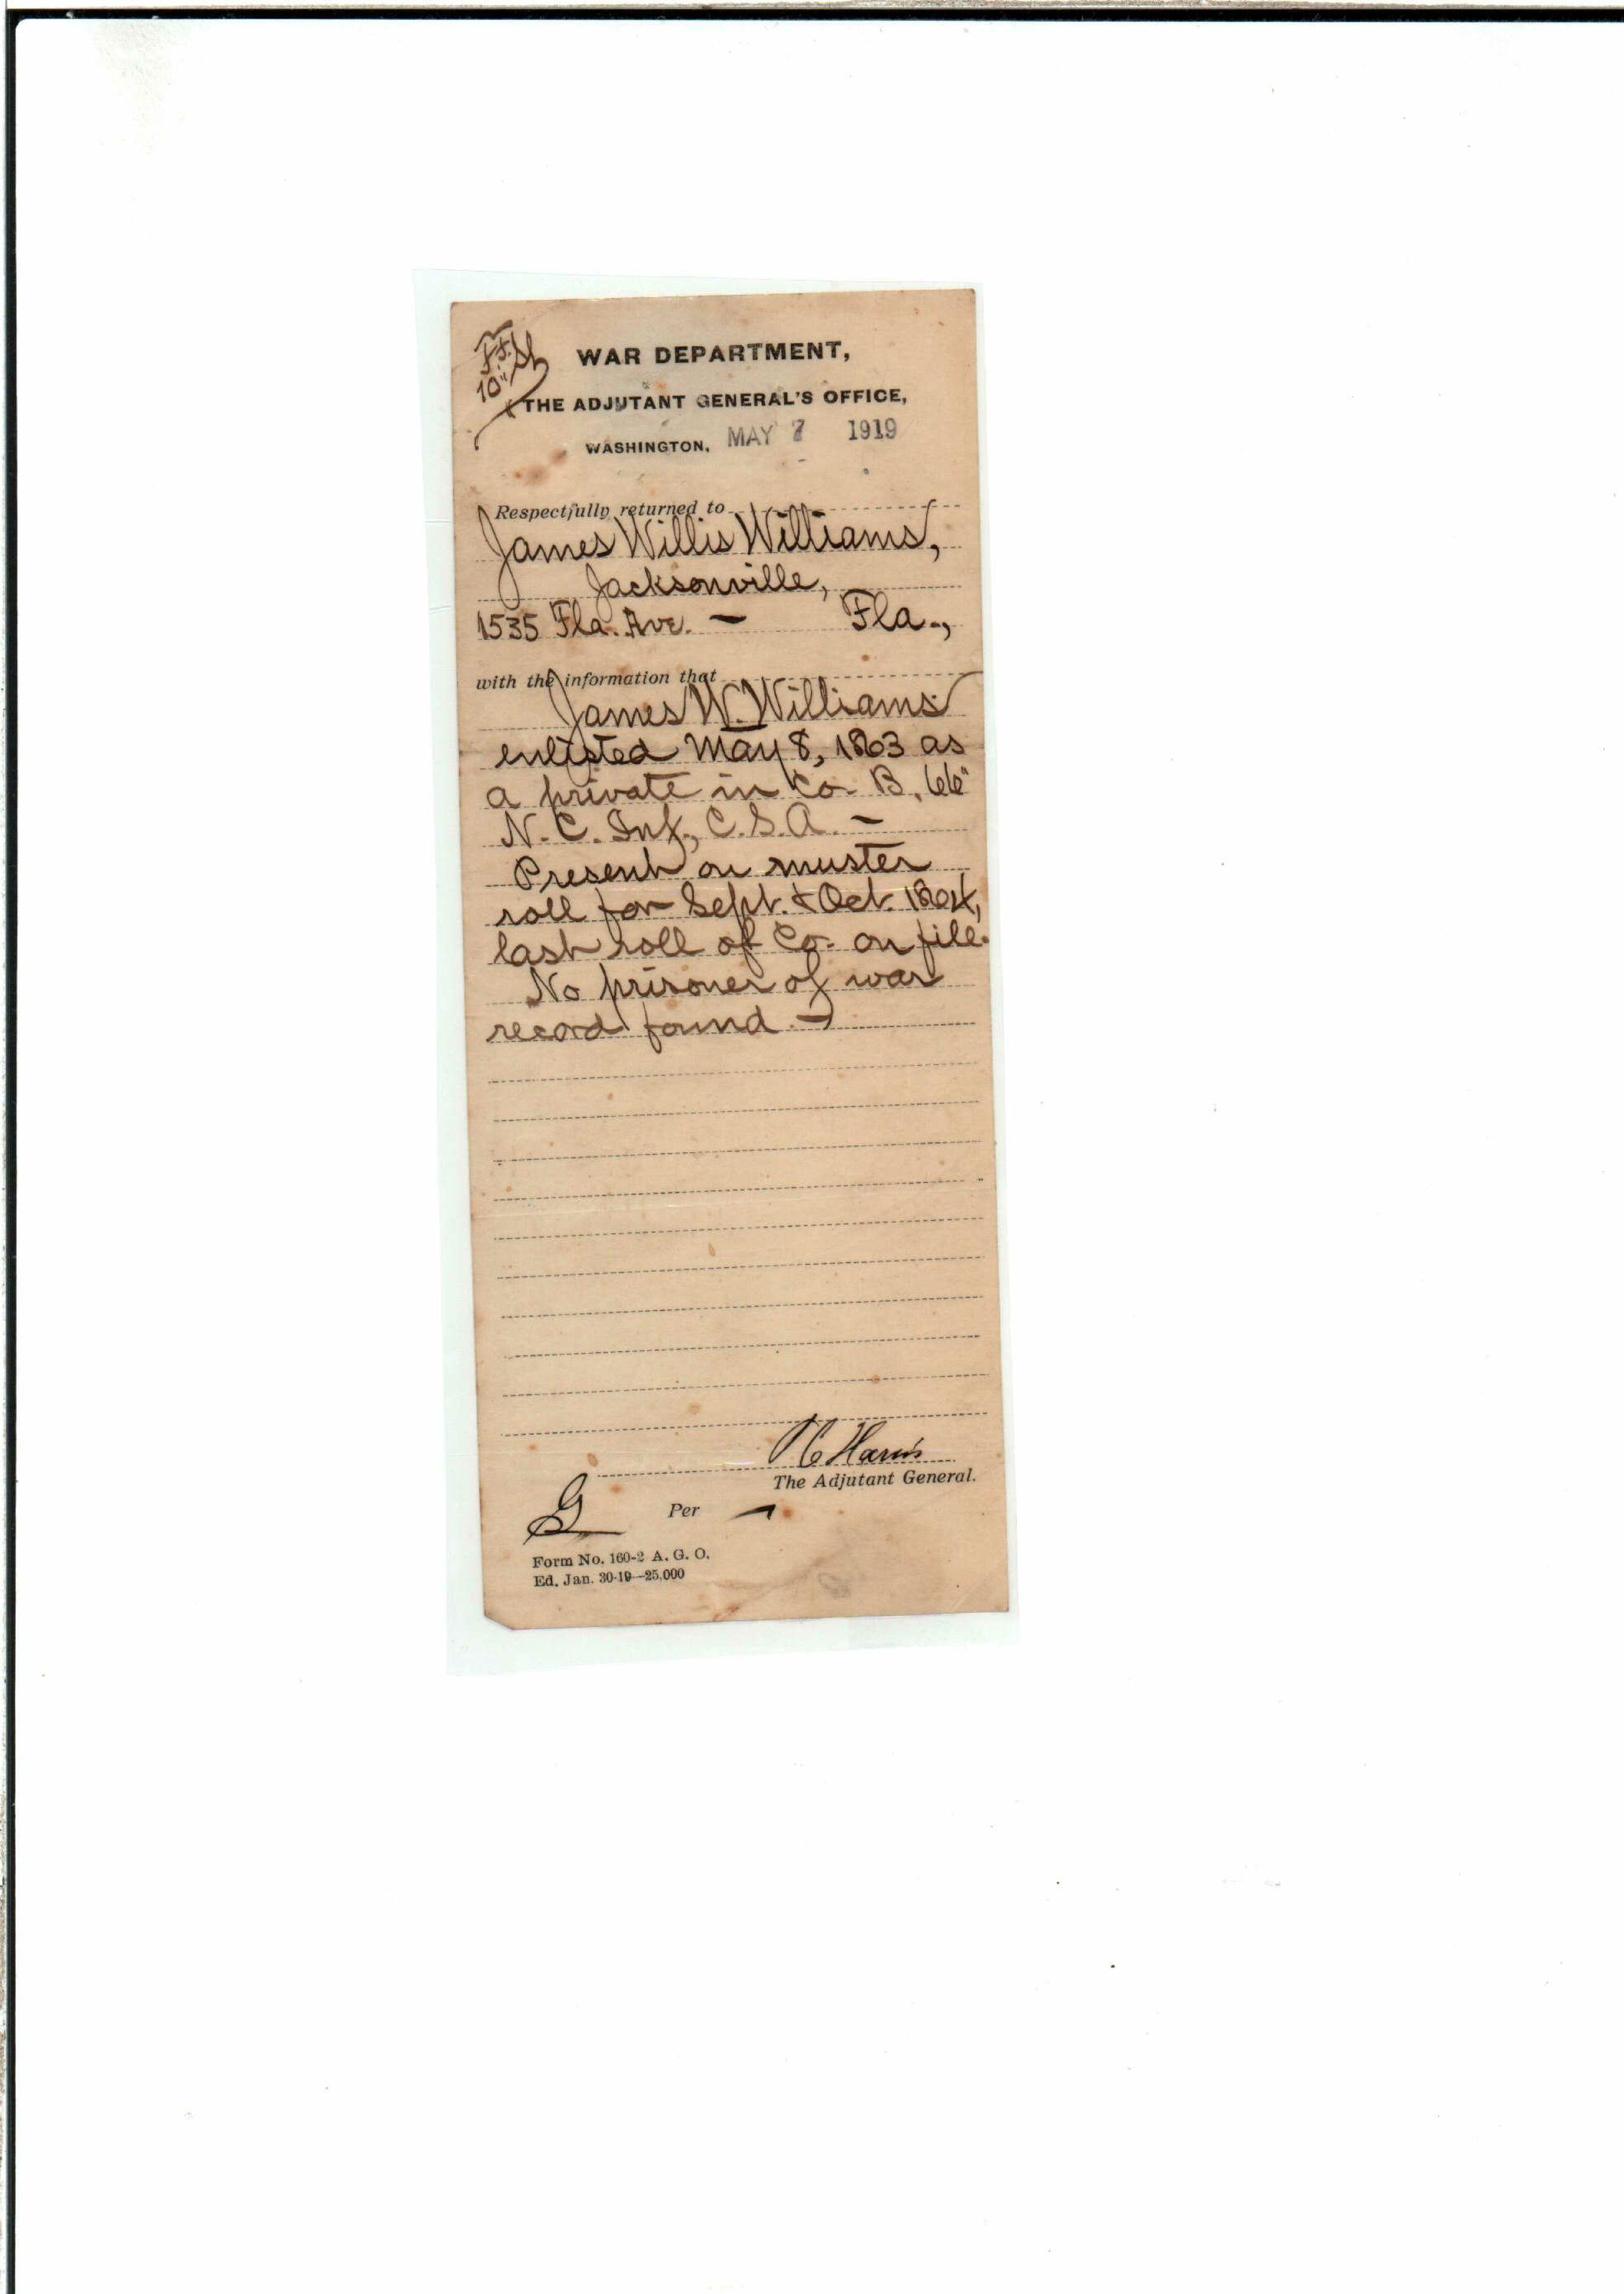 WAR DEPARTMENT,
THE ADJUTANT GENERAL'S OFFICE,
WASHINGTON, MAY 7 1919
Respectfully returned to
James Willis Williams,
Jacksonville,
1535 Fla. Ave. — Fla.,
with the information that
James W. Williams
enlisted May 8, 1863 as
a private in Co. B, 66"
N. C. Inf., C. S. A. —
Present on muster
roll for Sept. & Oct. 1864,
last roll of Co. on file.
No prisoner of war
record found. —
P C Harris
The Adjutant General.
G Per —
Form No. 160-2 A. G. O.
Ed. Jan. 30-19—25,000